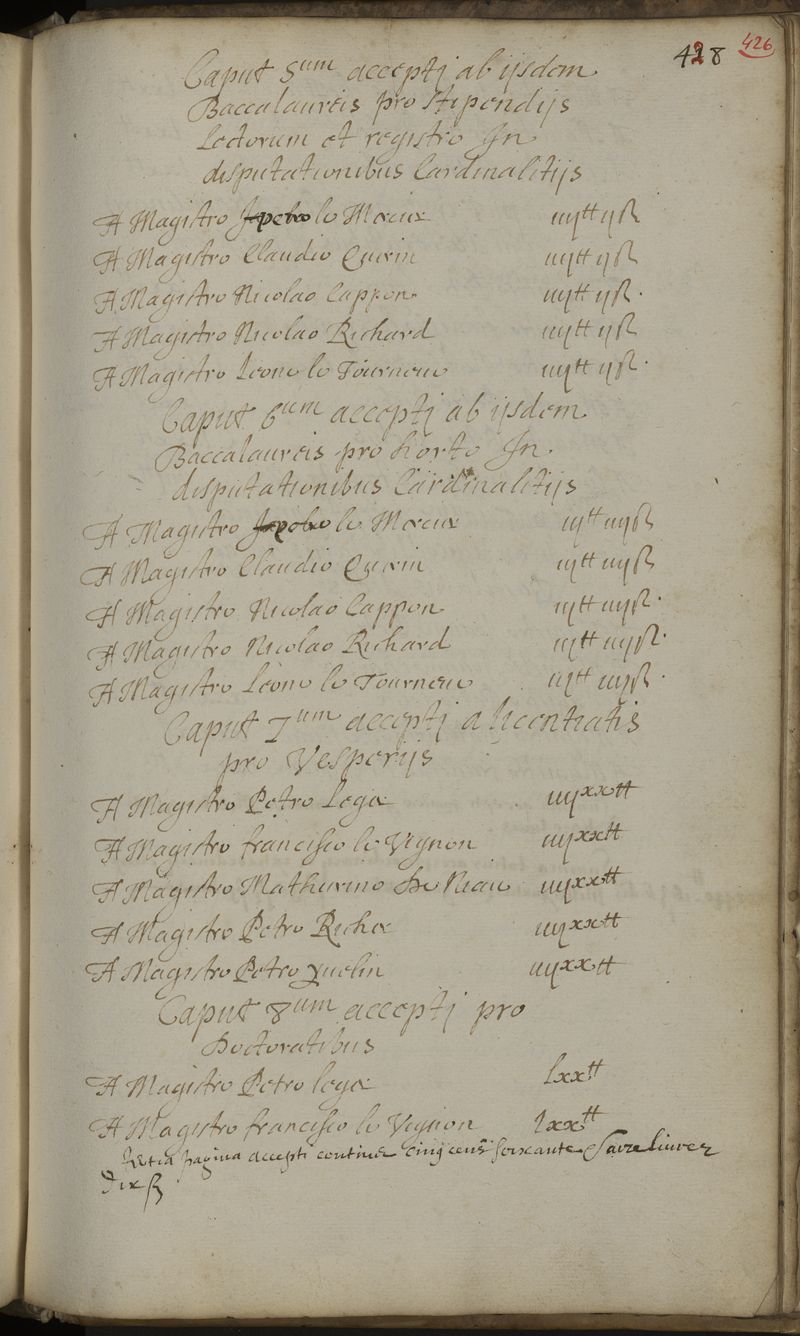 428 426
Caput 5um acceptj ab ijsdem
Baccalaureis pro stipendijs
Lectorum et registro In
disputationibus Cardinalitijs
A Magistro le Moeux iiijtt ijß
A Magistro Claudio Guerin iiijtt ijß
A Magistro Nicolao Cappon iiijtt ijß.
A Magistro Nicolao Richard iiijtt ijß
A Magistro Leone le Tourneur iiijtt ijß.
Caput 6um acceptj ab ijsdem
Baccalaureis pro horto In
disputationibus Cardinalitijs
A Magistro le Moeux iijtt iiijß
A Magistro Claudio Guerin iijtt iiijß
A Magistro Nicolao Cappon iijtt iiijß.
A Magistro Nicolao Richard iijtt iiijß.
A Magistro Leone le Tourneur iijtt iiijß.
Caput 7um acceptj a licentiatis
pro Vesperijs
A Magistro Petro Loge iiijxxtt
A Magistro francisco le Vignon iiijxxtt
A Magistro Mathurino De Neau iiijxxtt
A Magistro Petro Richer iiijxxtt
A Magistro Petro iiijxxtt
Caput 8um acceptj pro
Doctoratibus
A Magistro Petro loge lxxtt
A Magistro francisco le Vignon lxxtt
pagina accepti continet cinq cens soixante saize liures
dix ß